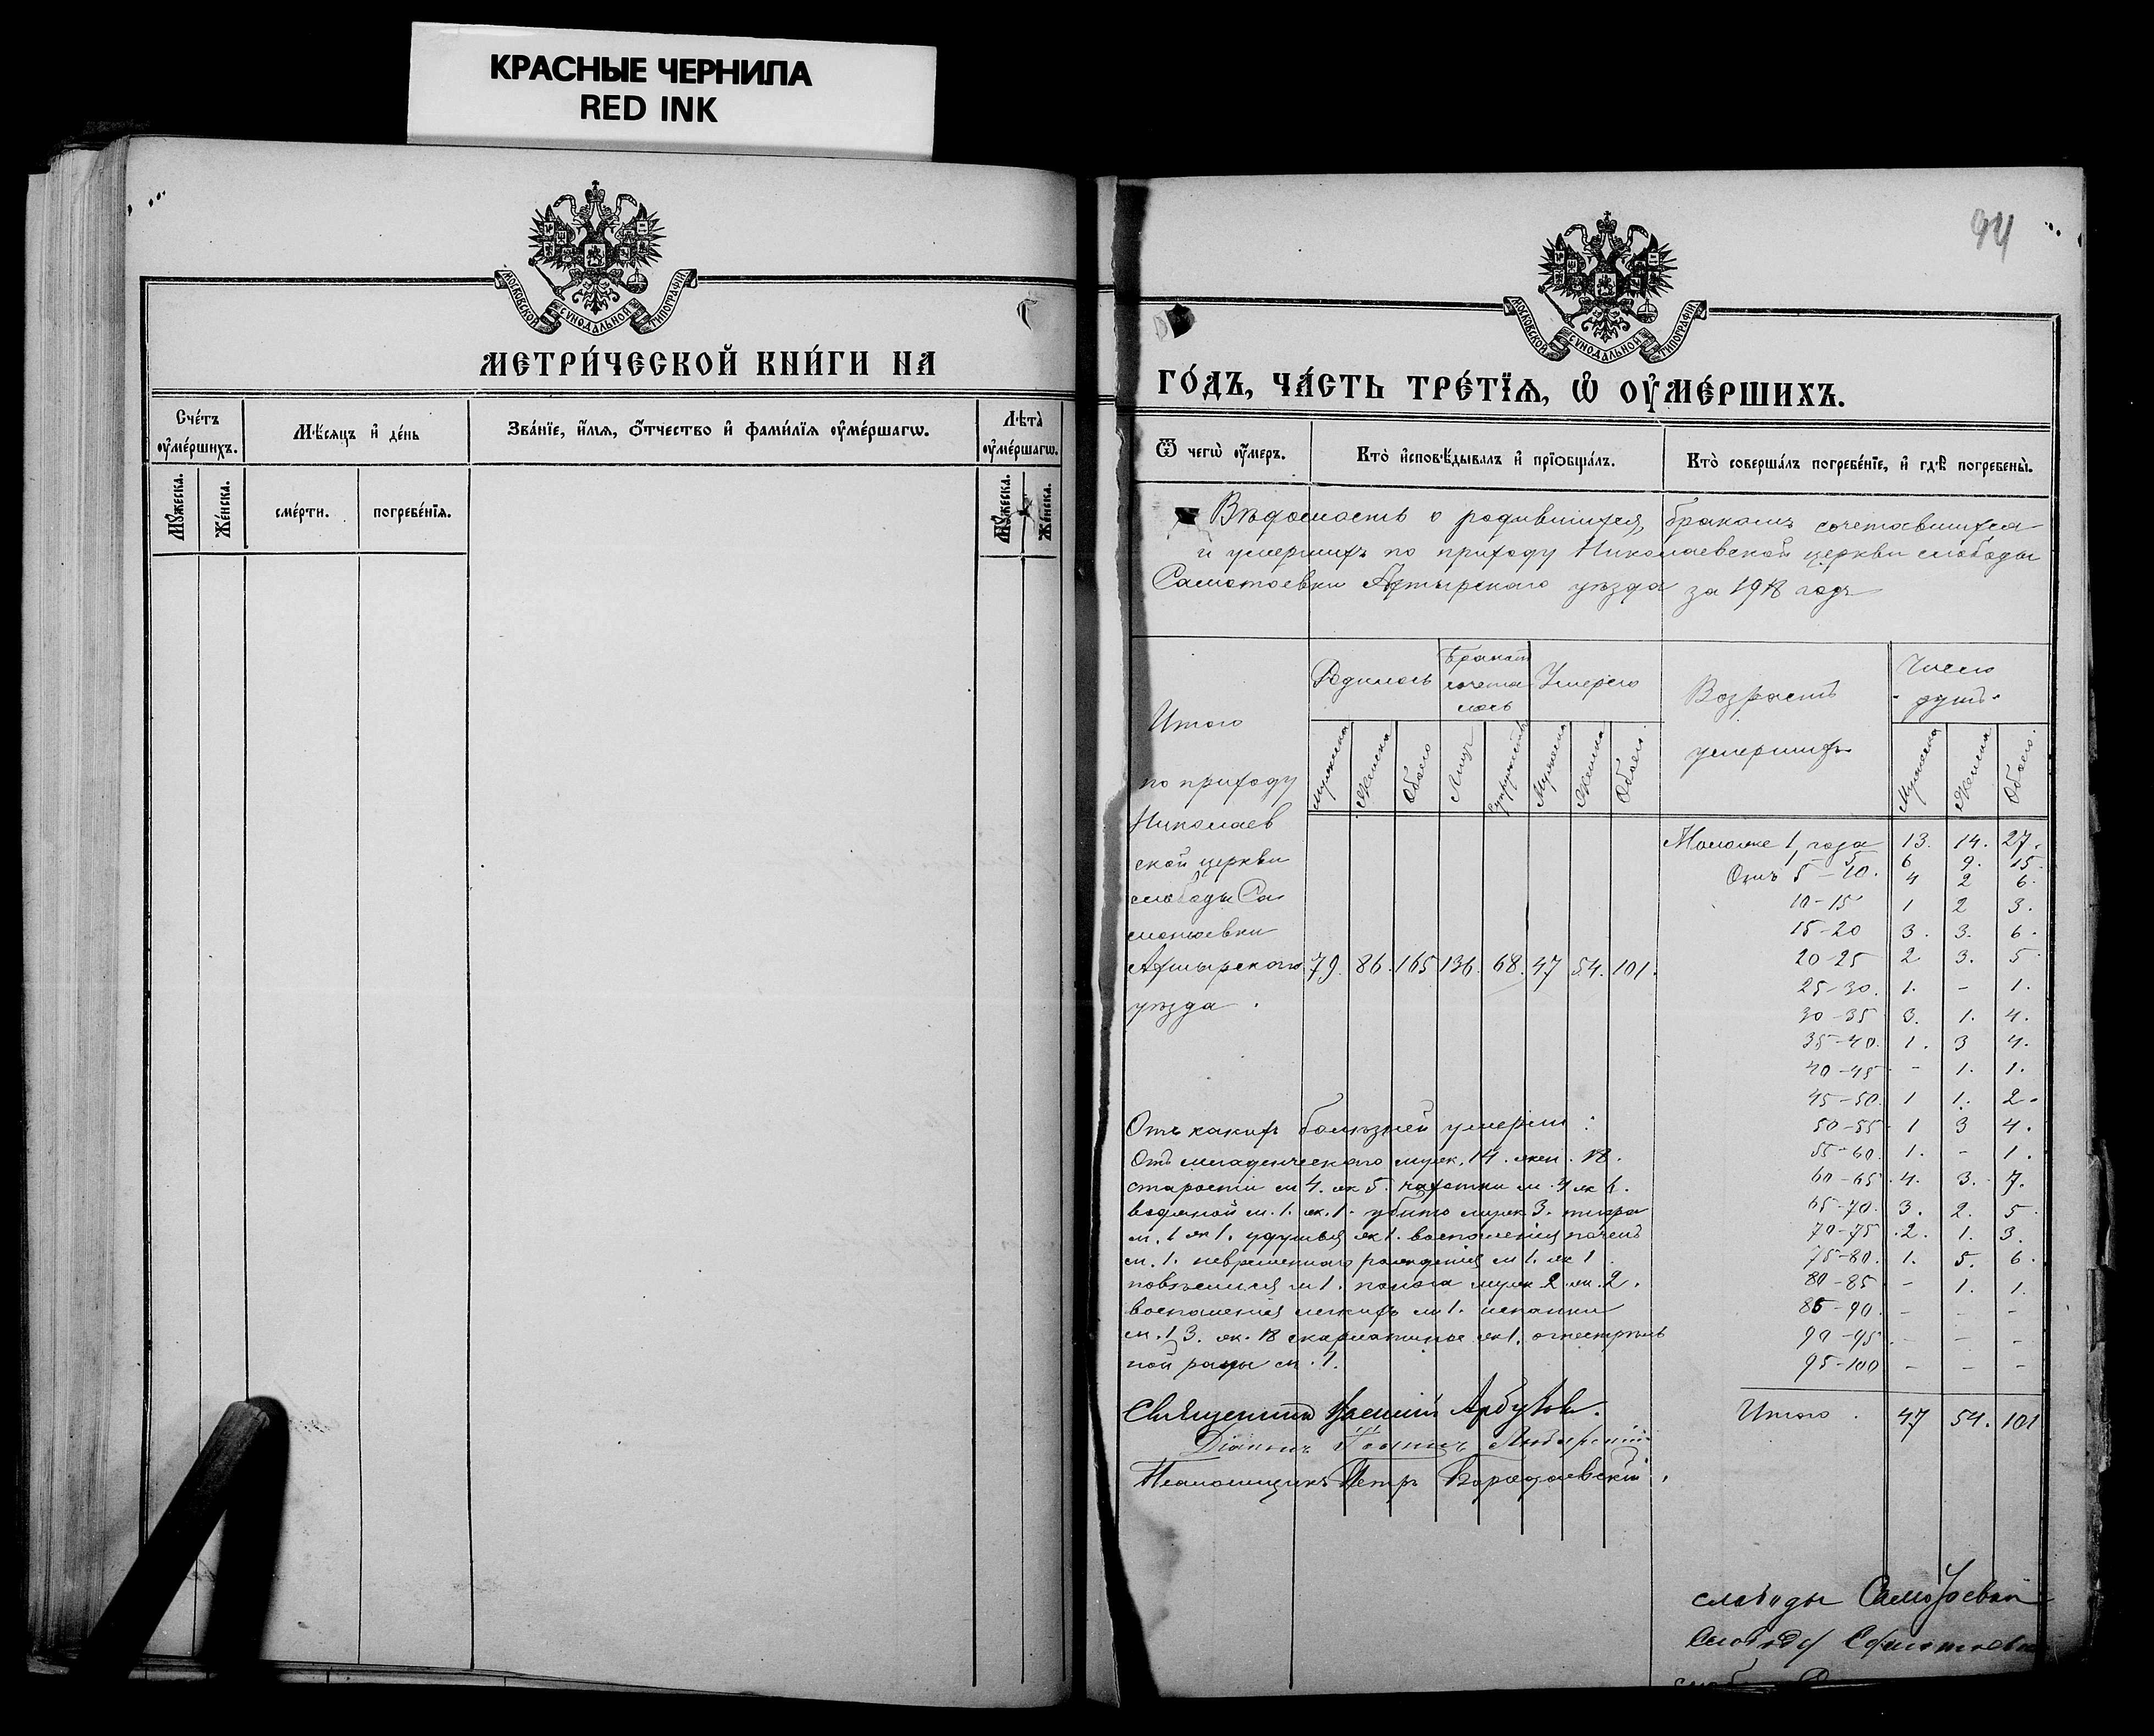 КРАСНЫЕ ЧЕРНИЛА
RED INK
МОСКОВСКОЙ СѴНОДАЛЬНОЙ ТИПОГРАФІИ
МЕТРИ́ЧЕСКОЙ КНИ́ГИ НА
Сче́тъ ᲂу҆ме́ршихъ.
Мѣ́сяцъ и҆ де́нь
Зва́нїе, и҆́мѧ, ѻ҆́тчество и҆ фами́лїѧ ᲂу҆ме́ршагѡ.
Лѣта̀ ᲂу҆ме́ршагѡ.
Мꙋ́жеска.
Же́нска.
сме́рти.
погребе́нїѧ.
Мꙋ́жеска.
Же́нска.
94
МОСКОВСКОЙ СѴНОДАЛЬНОЙ ТИПОГРАФІИ
ГО́ДЪ, ЧА́СТЬ ТРЕ́ТЇѦ, Ѡ҆ ОУ҆МЕ́РШИХЪ.
Ѿ чегѡ̀ ᲂу҆́меръ.
Кто̀ и҆сповѣ́дывалъ и҆ прїѡбща́лъ.
Кто̀ соверша́лъ погребе́нїе, и҆ гдѣ̀ погребены̀.
Вѣдомость о родившихся, бракомъ сочетавшихся
и умершихъ по приходу Николаевской церкви слободы
Самотоевки Ахтырскаго уѣзда за 1918 годъ
Итого
по приходу
Николаев
ской церкви
слободы Са
мотоевки
Ахтырскаго
уѣзда.
Родилось
Бракомъ сочета лось
Умерло
Возрастъ
умершихъ
Число
душъ
Мужеска Женска Обоего Лицъ Супружествъ Мужеска Женска Обоего.
Мужеска Женска Обоего.
79. 86. 165 136. 68. 47 54. 101.
Моложе 1 года 13. 14. 27.
5 6 9. 15.
Отъ 5-10. 4 2 6.
10-15 1 2 3.
15-20 3. 3. 6.
20-25 2 3. 5
25-30. 1. - 1.
30-35 3. 1. 4.
35-40. 1. 3 4.
40-45 - 1. 1.
45-50. 1 1. 2.
50-55 1 3 4.
55-60. 1. - 1.
60-65 4. 3. 7.
65-70. 3. 2. 5
70-75 2. 1. 3.
75-80. 1. 5. 6.
80-85 - 1. 1.
85-90. - - -
90-95 - - -
95-100 - - -
Итого. 47 54. 101
Отъ какихъ болѣзней умерли:
Отъ младенческаго муж. 14. жен. 18.
старости м 4. ж 5. чахотки м. 4 ж 6.
водяной м. 1. ж. 1. убито муж 3. тифа
м. 1 ж 1. удушья ж 1. воспаленія почекъ
м. 1. невременнаго рожденія м 1. ж 1
повѣсился м 1. поноса муж 2. ж. 2.
воспаленія легкихъ м 1. испанки
м. 13. ж. 18 скарлатины ж 1. огнестрѣль
ной раны м. 1.
Священникъ
Діаконъ Іоаннъ
Псаломщикъ Петръ
слободы